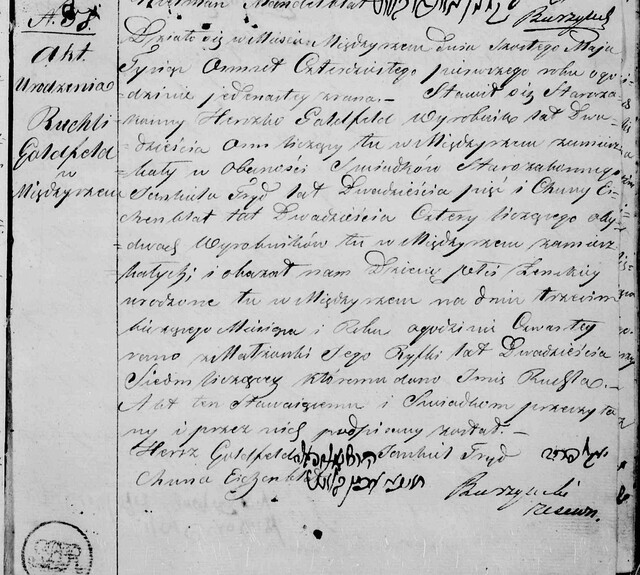 Mandelblat
Burzyński
A. 98.
Akt
Urodzenia
Ruchli
Goldfeld
w
Międzyrzecu
Działo się w Mieście Międzyrzecu dnia szostego Maja
Tysiąc Osmset Czterdziestego pierwszego roku ogo
dzinie jedenastey zrana. – Stawił się Staroza
konny Herszko Goldfeld Wyrobnik lat Dwa
dzieścia Ośm liczący tu w Międzyrzecu zamiesz
kały w obecności Świadków Starozakonnego
Fryd lat Dwadzieścia pięć i Chuny Ei
zenblat lat Dwadzieścia Cztery liczącego oby
dwoch Wyrobników tu w Międzyrzecu zamiesz
kałych i okazał nam Dziecię płci Żeńskiey
urodzone tu w Międzyrzecu na dniu trzecim
bieżącego Miesiąca i Roku ogodzinie Czwartey
rano z Małżonki Jego Ryfki lat Dwadzieścia
Siedm liczącey któremu dano Imie Ruchla.
Akt ten Stawaiącemu i Swiadkom przeczyta
ny i przez nich podpisany został. –
Hersz Goldfeld Fryd
Chuna Eizenblat
Burzyński